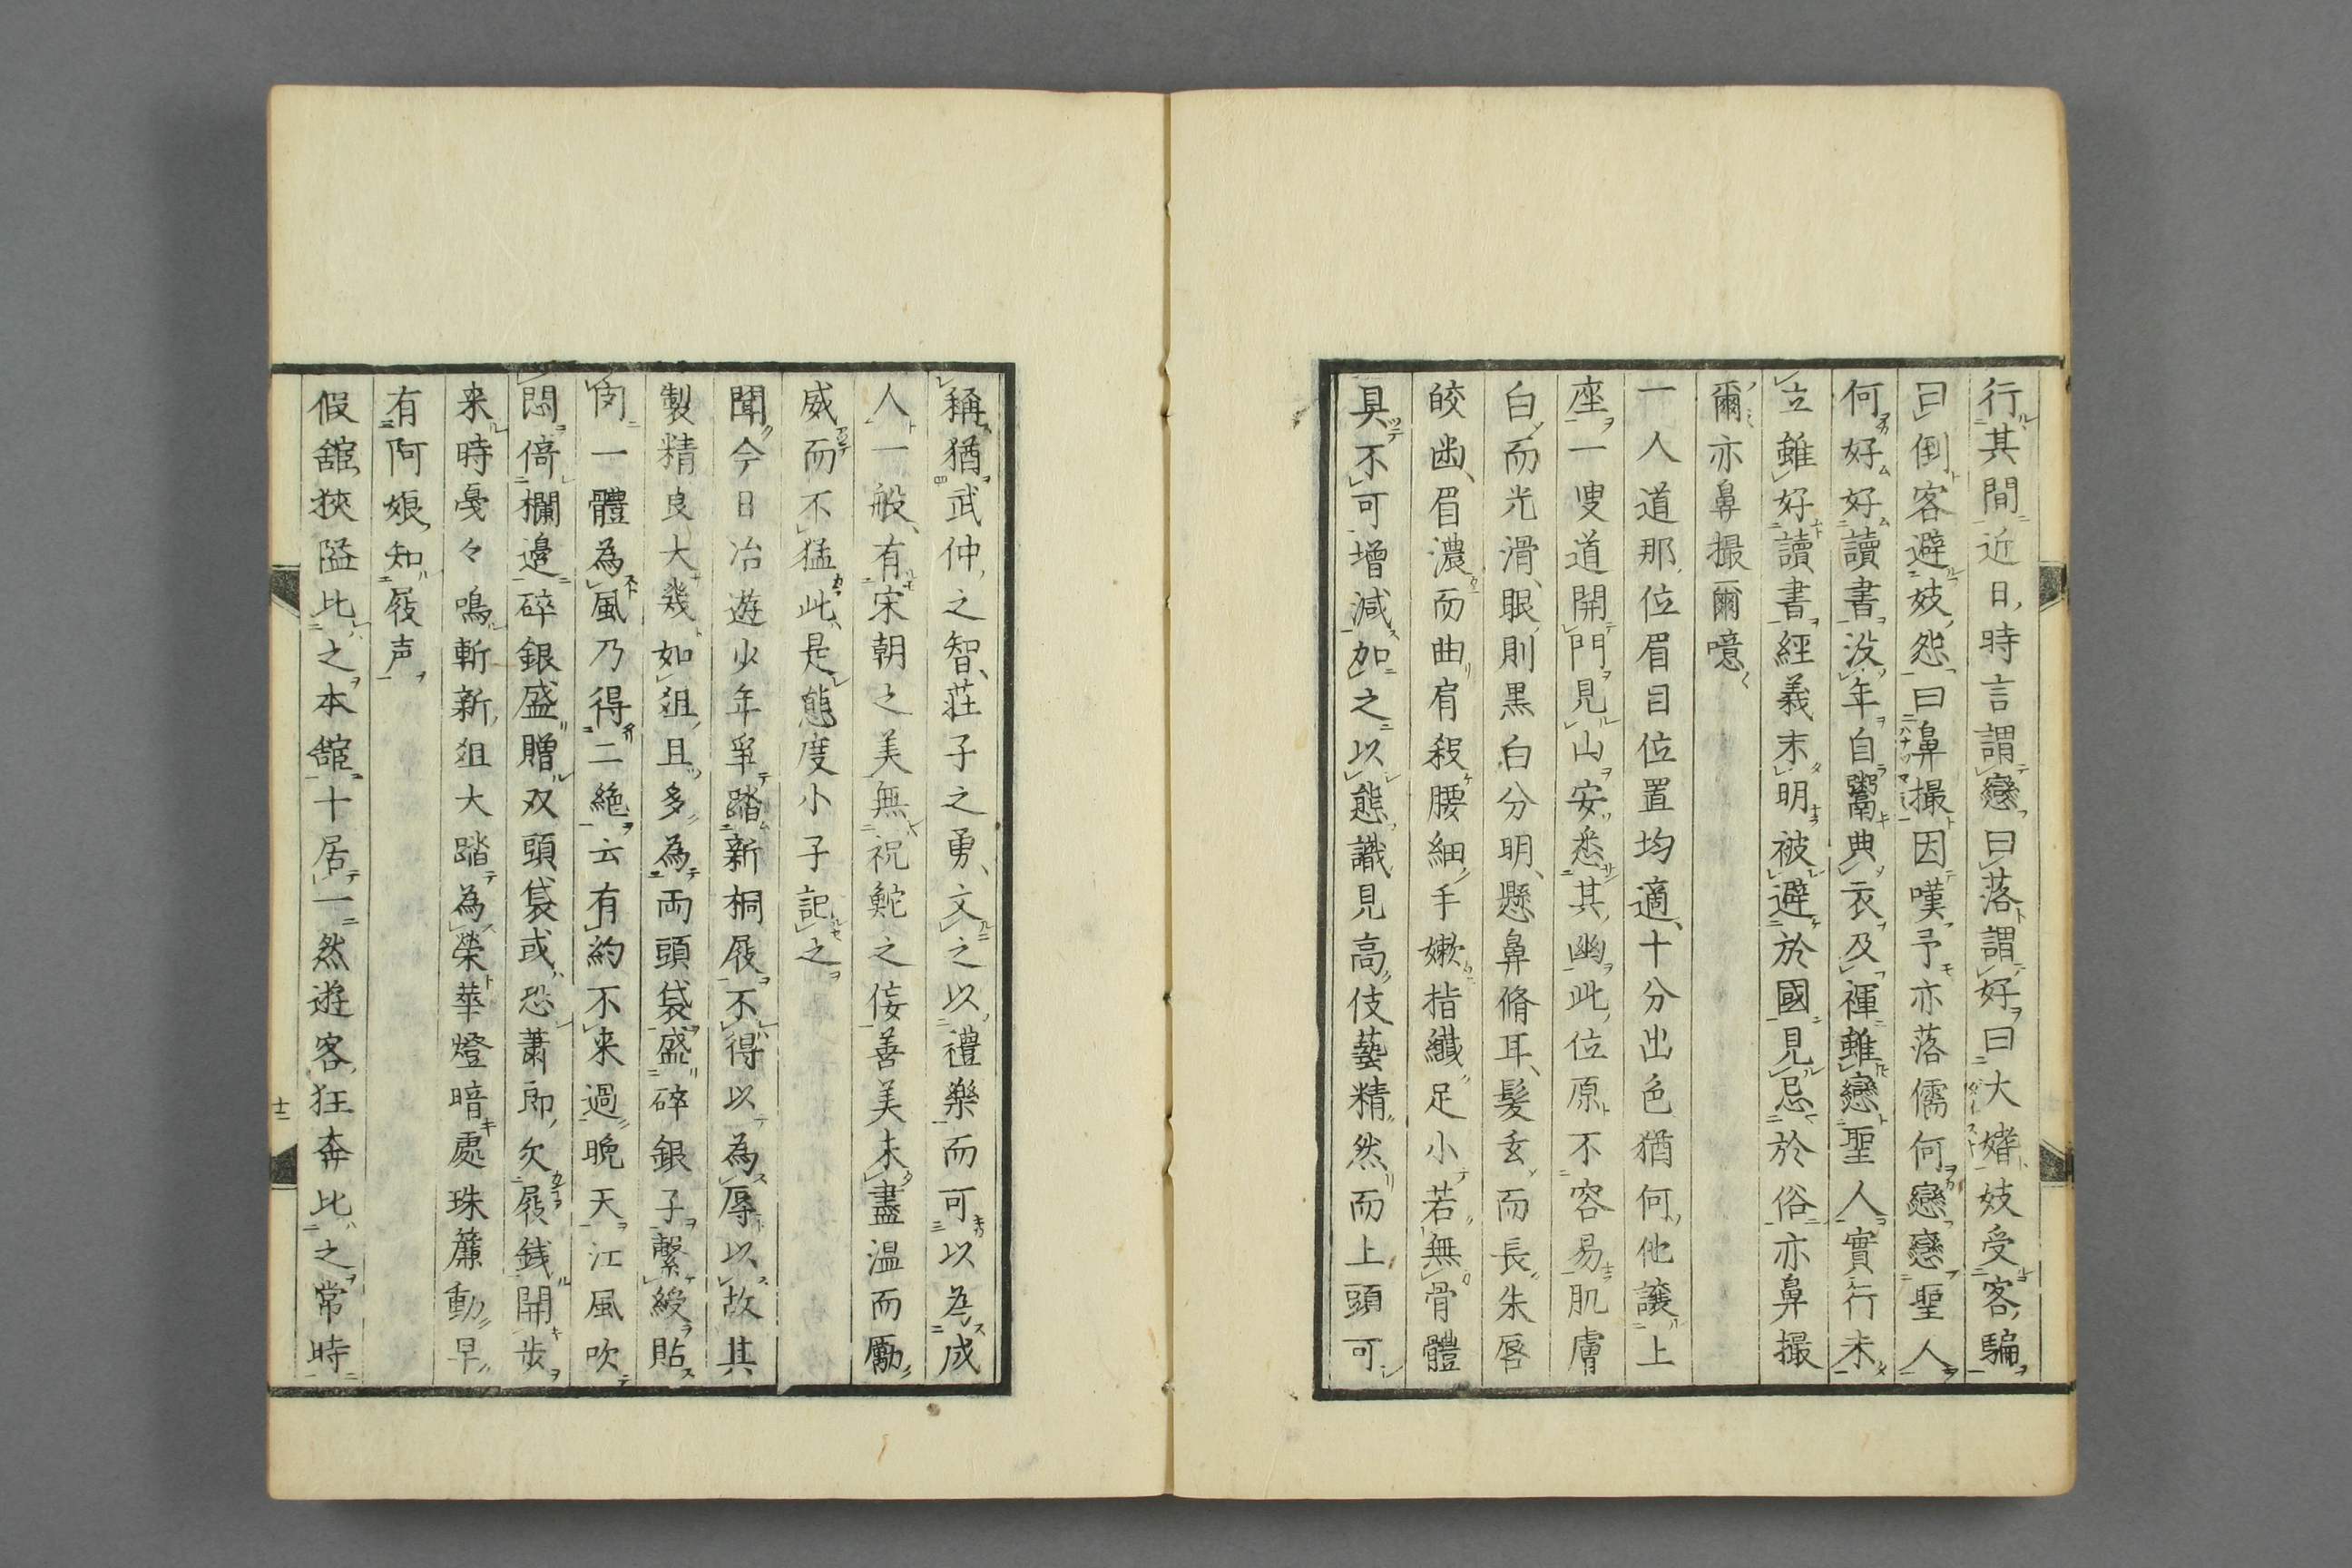 行其間近日時言謂戀曰落謂好曰大媎妓受客騙
曰倒客避妓怨曰鼻撮因嘆予亦落儒何戀戀聖人
何好好讀書没年自鬻典衣及褌雖戀聖人實行未
立雖好讀書經義未明被避於國見忌於俗亦鼻撮
爾亦鼻撮爾噫
一人道那位眉目位置均適十分出色猶何他讓上
座一叟道開門見山安悉其幽此位原不容易肌膚
白而光滑眼則黒白分明懸鼻脩耳髪玄而長朱唇
皎齒眉濃而曲肩殺腰細手嫩指纎足小若無骨體
具不可增減加之以態識見高伎藝精然而上頭可
稱猶武仲之智莊子之勇文之以禮樂而可以為成
人一般有宋朝之美無祝鮀之佞善美未盡温而厲
威而不猛此是態度小子記之
聞今日冶遊少年爭踏新桐屐不得以為辱以故其
製精良大幾如俎且多為両頭袋盛碎銀子繫綬貼
肉一體為風乃得二絶云有約不来過晩天江風吹
悶倚欄邊碎銀盛贈双頭袋或恐蕭郎欠屐銭開歩
来時戞々鳴斬新俎大踏為榮華燈暗處珠簾動早
有阿娘知屐声
假舘狹隘比之本舘十居一然遊客狂奔比之常時
十二